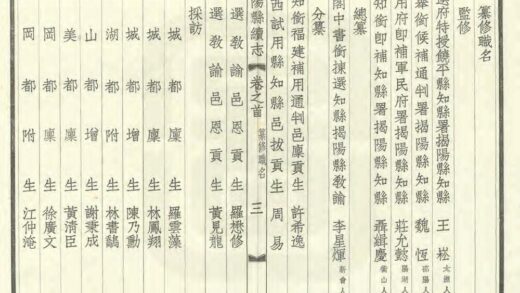 纂修職名
監修
府特授饒平縣知縣署揭陽縣知縣 王 崧 大興人
舉銜候補通判署揭陽縣知縣 魏 恆 邵陽人
用府卽補軍民府署揭陽縣知縣 莊允懿 陽湖人
知銜卽補知縣署揭陽縣知縣 聶緝慶 衡山人
總纂
閣中書銜揀選知縣揭陽縣教諭 李星煇 新會人
分纂
西試用縣知縣邑拔貢生 周 易
知銜福建補用通判邑廩貢生 許希逸
陽縣續志 卷之首 纂修職名 三
選教諭邑恩貢生 羅懋修
選教諭邑恩貢生 黃見龍
採訪
城都廩生 羅雲藻
城都廩生 林鳳翔
城都增生 陳乃勳
湖都附生 林書鷸
山都增生 謝秉成
美都廩生 黃清臣
岡都廩生 徐廣文
岡都附生 江仲淹